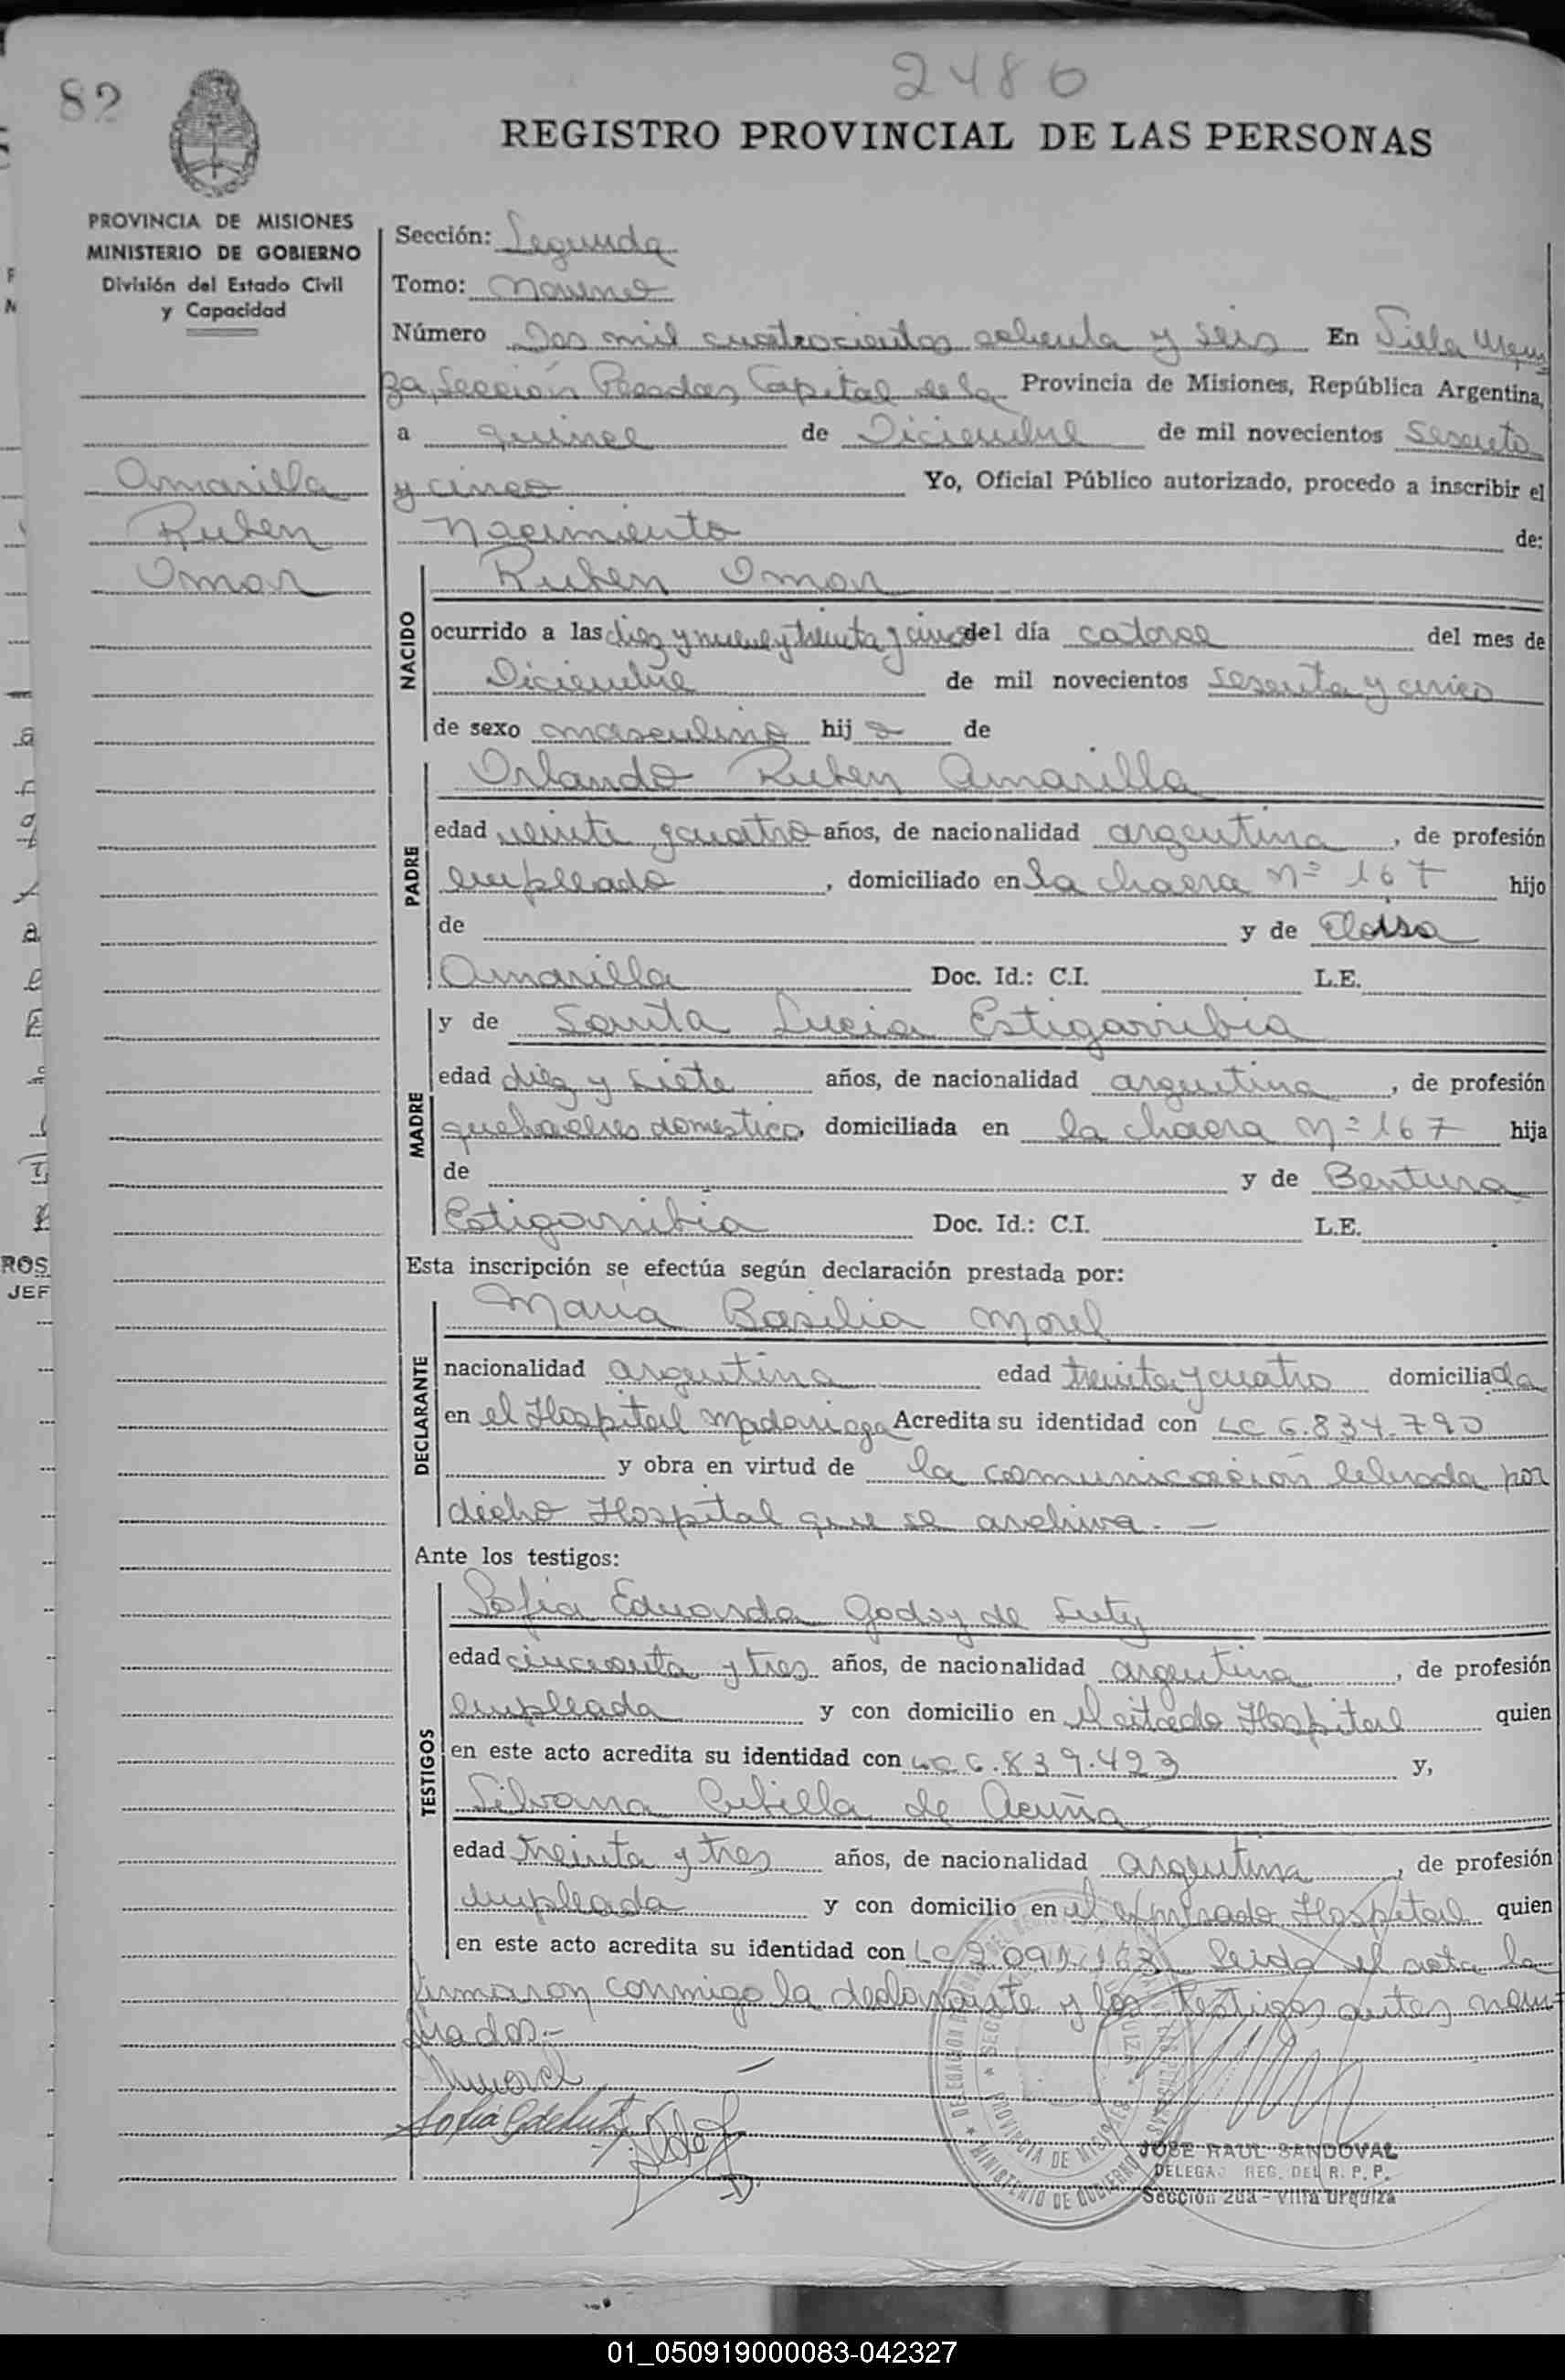 82
2486
REGISTRO PROVINCIAL DE LAS PERSONAS
PROVINCIA DE MISIONES
MINISTERIO DE GOBIERNO
División del Estado Civil
y Capacidad
Amarilla
Ruben
Omar
Sección: Segunda
Tomo: Noveno
Número Dos mil cuatrocientos ochenta y seis En Villa Urqui
za, Sección Posadas Capital de la Provincia de Misiones, República Argentina,
a quince de Diciembre de mil novecientos sesenta
y cinco Yo, Oficial Público autorizado, procedo a inscribir el
Nacimiento de:
NACIDO
Ruben Omar
ocurrido a las diez y nueve y treinta y cinco del día catorce del mes de
Diciembre de mil novecientos sesenta y cinco
de sexo masculino hijo de
PADRE
Orlando Ruben Amarilla
edad veinte y cuatro años, de nacionalidad argentina, de profesión
empleado, domiciliado en la chacra nº 167 hijo
de y de Eloisa
Amarilla Doc. Id.: C.I. L.E.
MADRE
y de Santa Lucia Estigarribia
edad diez y siete años, de nacionalidad argentina, de profesión
quehaceres domestico, domiciliada en la chacra nº 167 hija
de y de Bentura
Estigarribia Doc. Id.: C.I. L.E.
Esta inscripción se efectúa según declaración prestada por:
DECLARANTE
Maria Basilia Morel
nacionalidad argentina edad treinta y cuatro domiciliada
en el Hospital Madariaga Acredita su identidad con LC 6.834.790
y obra en virtud de la comunicación librada por
dicho Hospital que se archiva.-
Ante los testigos:
TESTIGOS
Sofia Eduarda Godoy de Luty
edad cincuenta y tres años, de nacionalidad argentina, de profesión
empleada y con domicilio en el citado Hospital quien
en este acto acredita su identidad con LC 6.839.423 y,
Silvana Cubilla de Acuña
edad treinta y tres años, de nacionalidad argentina, de profesión
empleada y con domicilio en el expresado Hospital quien
en este acto acredita su identidad con LC Leida el acta la
firmaron conmigo la declarante y los testigos antes nom=
brados.-
JOSE RAUL SANDOVAL
DELEGA REG. DEL R. P. P.
Sección 2da - Villa Urquiza
PROVINCIA DE MISIONES
MINISTERIO DE GOBIERNO
ROS
JEF
01_050919000083-042327